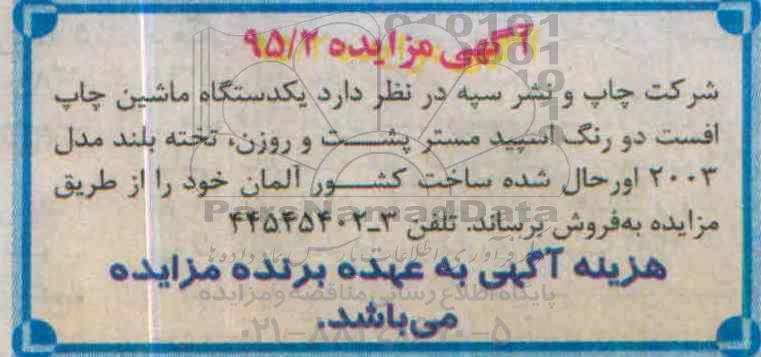 آگهی مزایده ۹۵/۲
شرکت چاپ و نشر سپه در نظر دارد یکدستگاه ماشین چاپ
افست دو رنگ اسپید مستر پشت و روزن، تخته بلند مدل
۲۰۰۳ اورحال شده ساخت کشور آلمان خود را از طریق
ParsNamadData
مزایده به‌فروش برساند. تلفن ۳ـ۴۴۵۴۵۴۰۲
هزینه آگهی به عهده برنده مزایده
پایگاه اطلاع رسانی مناقصه و مزایده
می‌باشد.